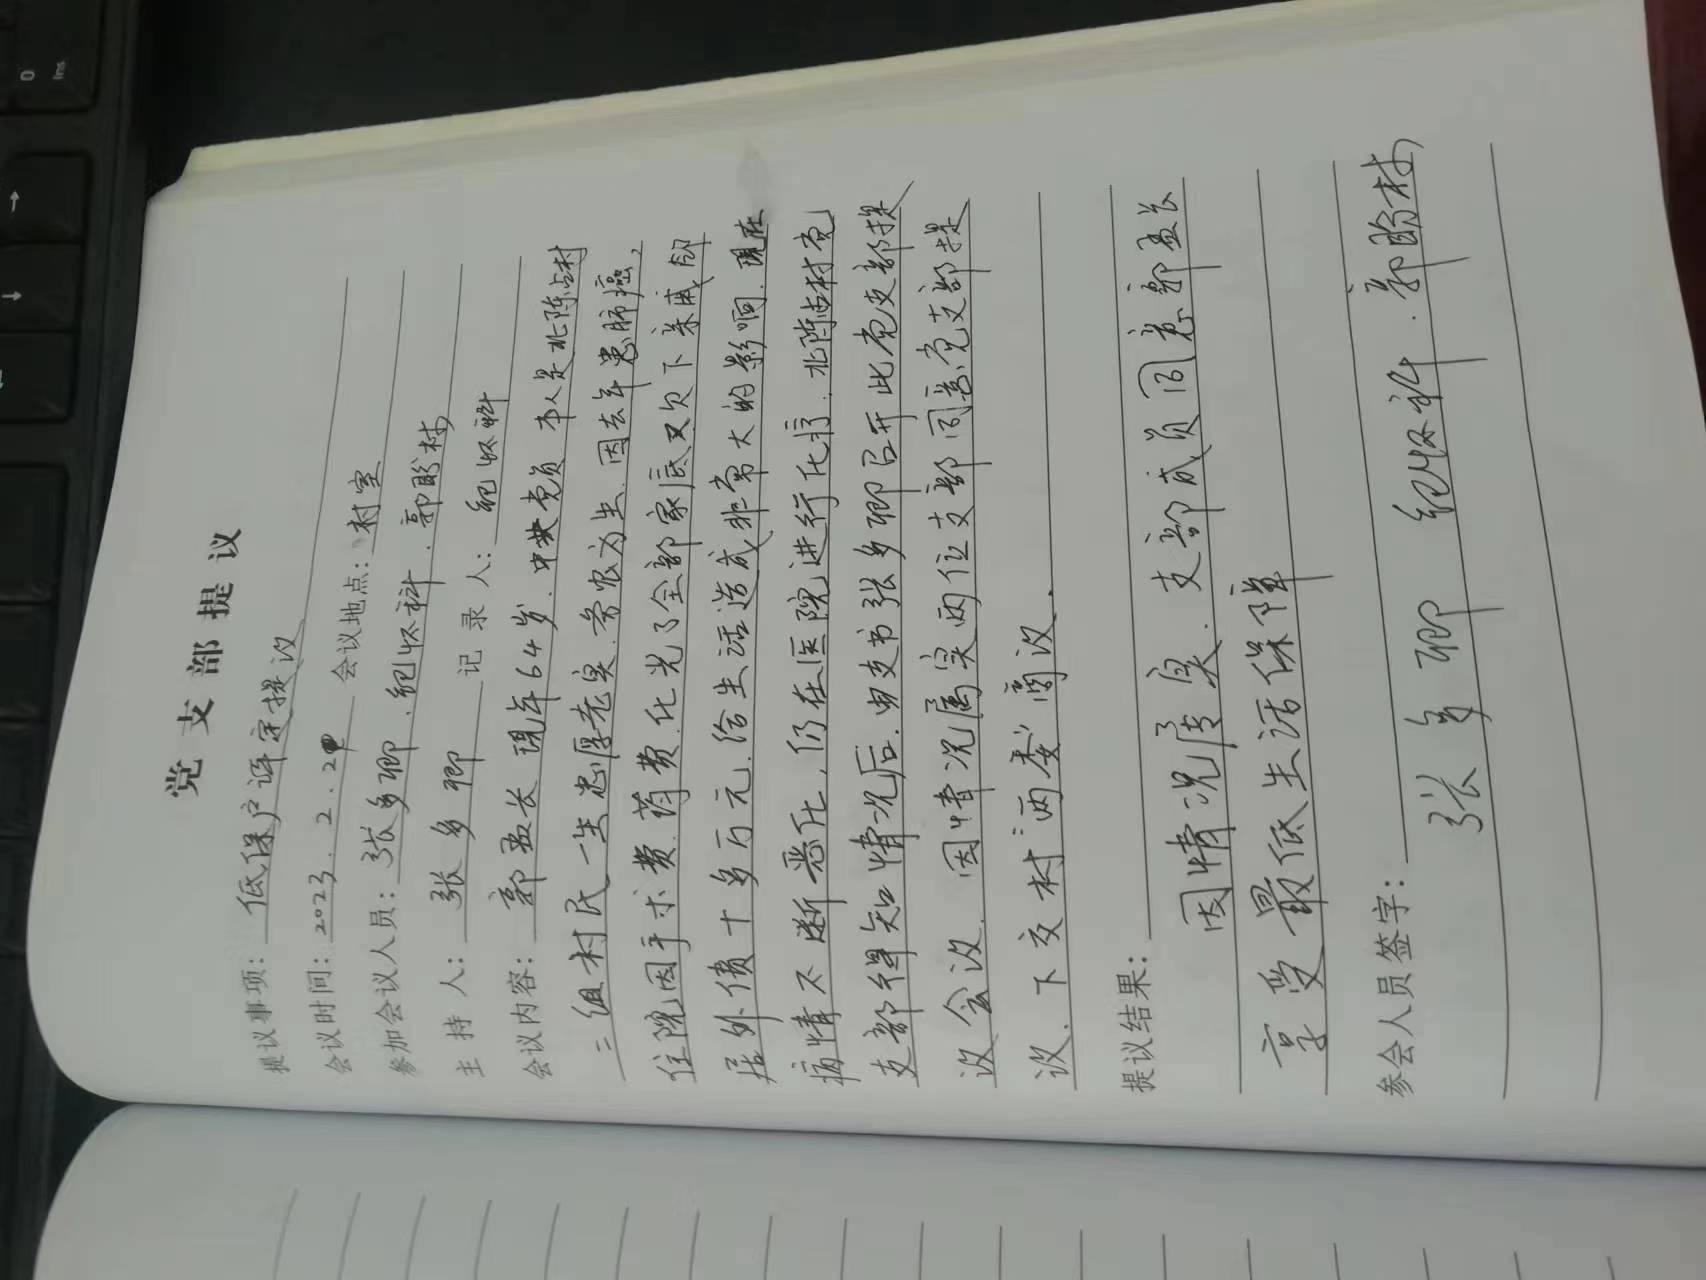 党支部提议
提议事项：低保户评定提议
会议时间：2023.2.2 会议地点：村室
参加会议人员：张多卿．纪怀科．郭盼村
主持人：张多卿 记录人：纪怀科
会议内容：郭孟长现年64岁．中共党员 本人是北陈占村
二组村民一生忠厚老实．务农为生．因去年患肺癌，
住院因手术费．药费．化光了全部家底又欠下亲戚邻
居外债十多万元．给生活造成非常大的影响．现在
病情不断恶化．仍在医院进行化疗．北陈占村党
支部得知情况后．由支书张多卿召开此党支部提
议会议．因情况属实两位支部同意党支部提
议．下交村“两委”商议．
提议结果：
因情况属实．支部成员同意郭孟长
享受最低生活保障
参会人员签字：
张多卿 纪怀科．郭盼村
0
Ins